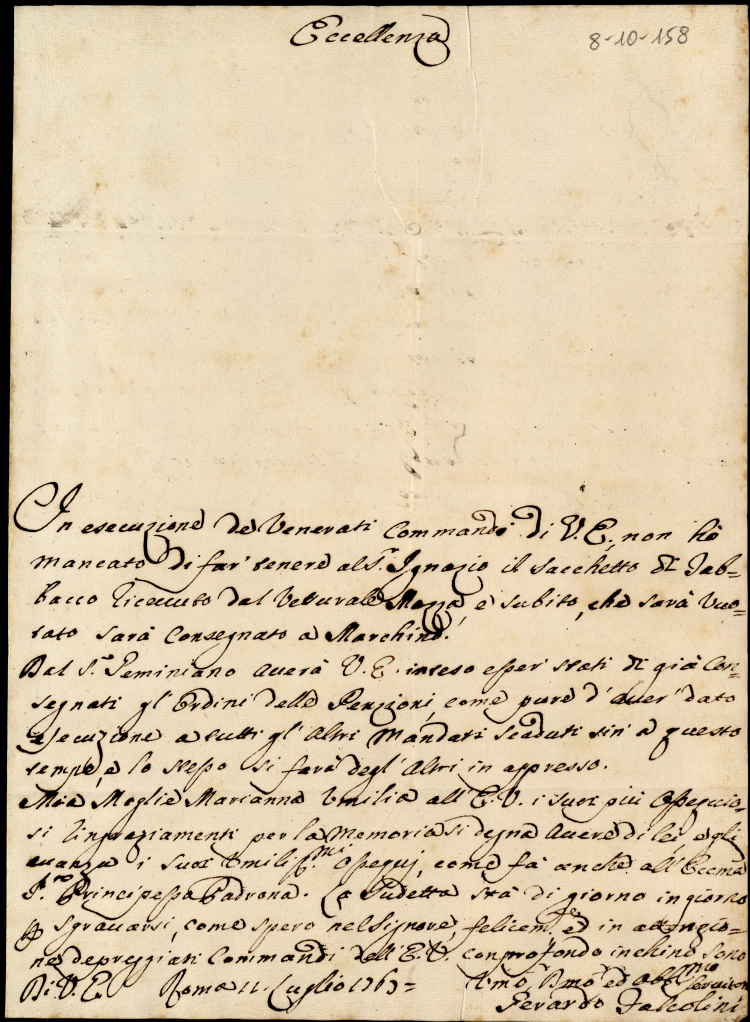 Eccellenza
8-10-158
In esecuzione de Venerati Commandi di V.E. non hò
mancato di far' tenere al Sr. Ignazio il sacchetto di Tab=
bacco riceuuto dal Vetturale e subito, che sarà Vuo=
tato sarà Consegnato a Marchino.
Dal Sr. Geminiano auerà V.E. inteso esser stati di già Con=
segnati gl' Ordini delle Penzioni, come pure d'auer' dato
esecuzione a tutti gl' Altri Mandati scaduti sin' a questo
tempo, e lo stesso si farà degl' Altri in appresso.
Mia Moglie Marianna Vmilia all' E.V. i suoi più Ossequio=
si ringraziamenti per la Memoria si degna Auere di lei, e gli
auanza i suoi Vmiliss.mi Ossequj, come fà anche all' Eccma
Principessa Padrona. La Sudetta stà di giorno in giorno
p sgrauarsi, come spero nel Signore, felicem.te ed in attenzio=
ne de preggiati Commandi dell' E.V. con profondo inchino sono
Di V.E. Roma 11. Luglio 1763=
Vmo Dmo ed Obbmo Seruitore
Falcolini